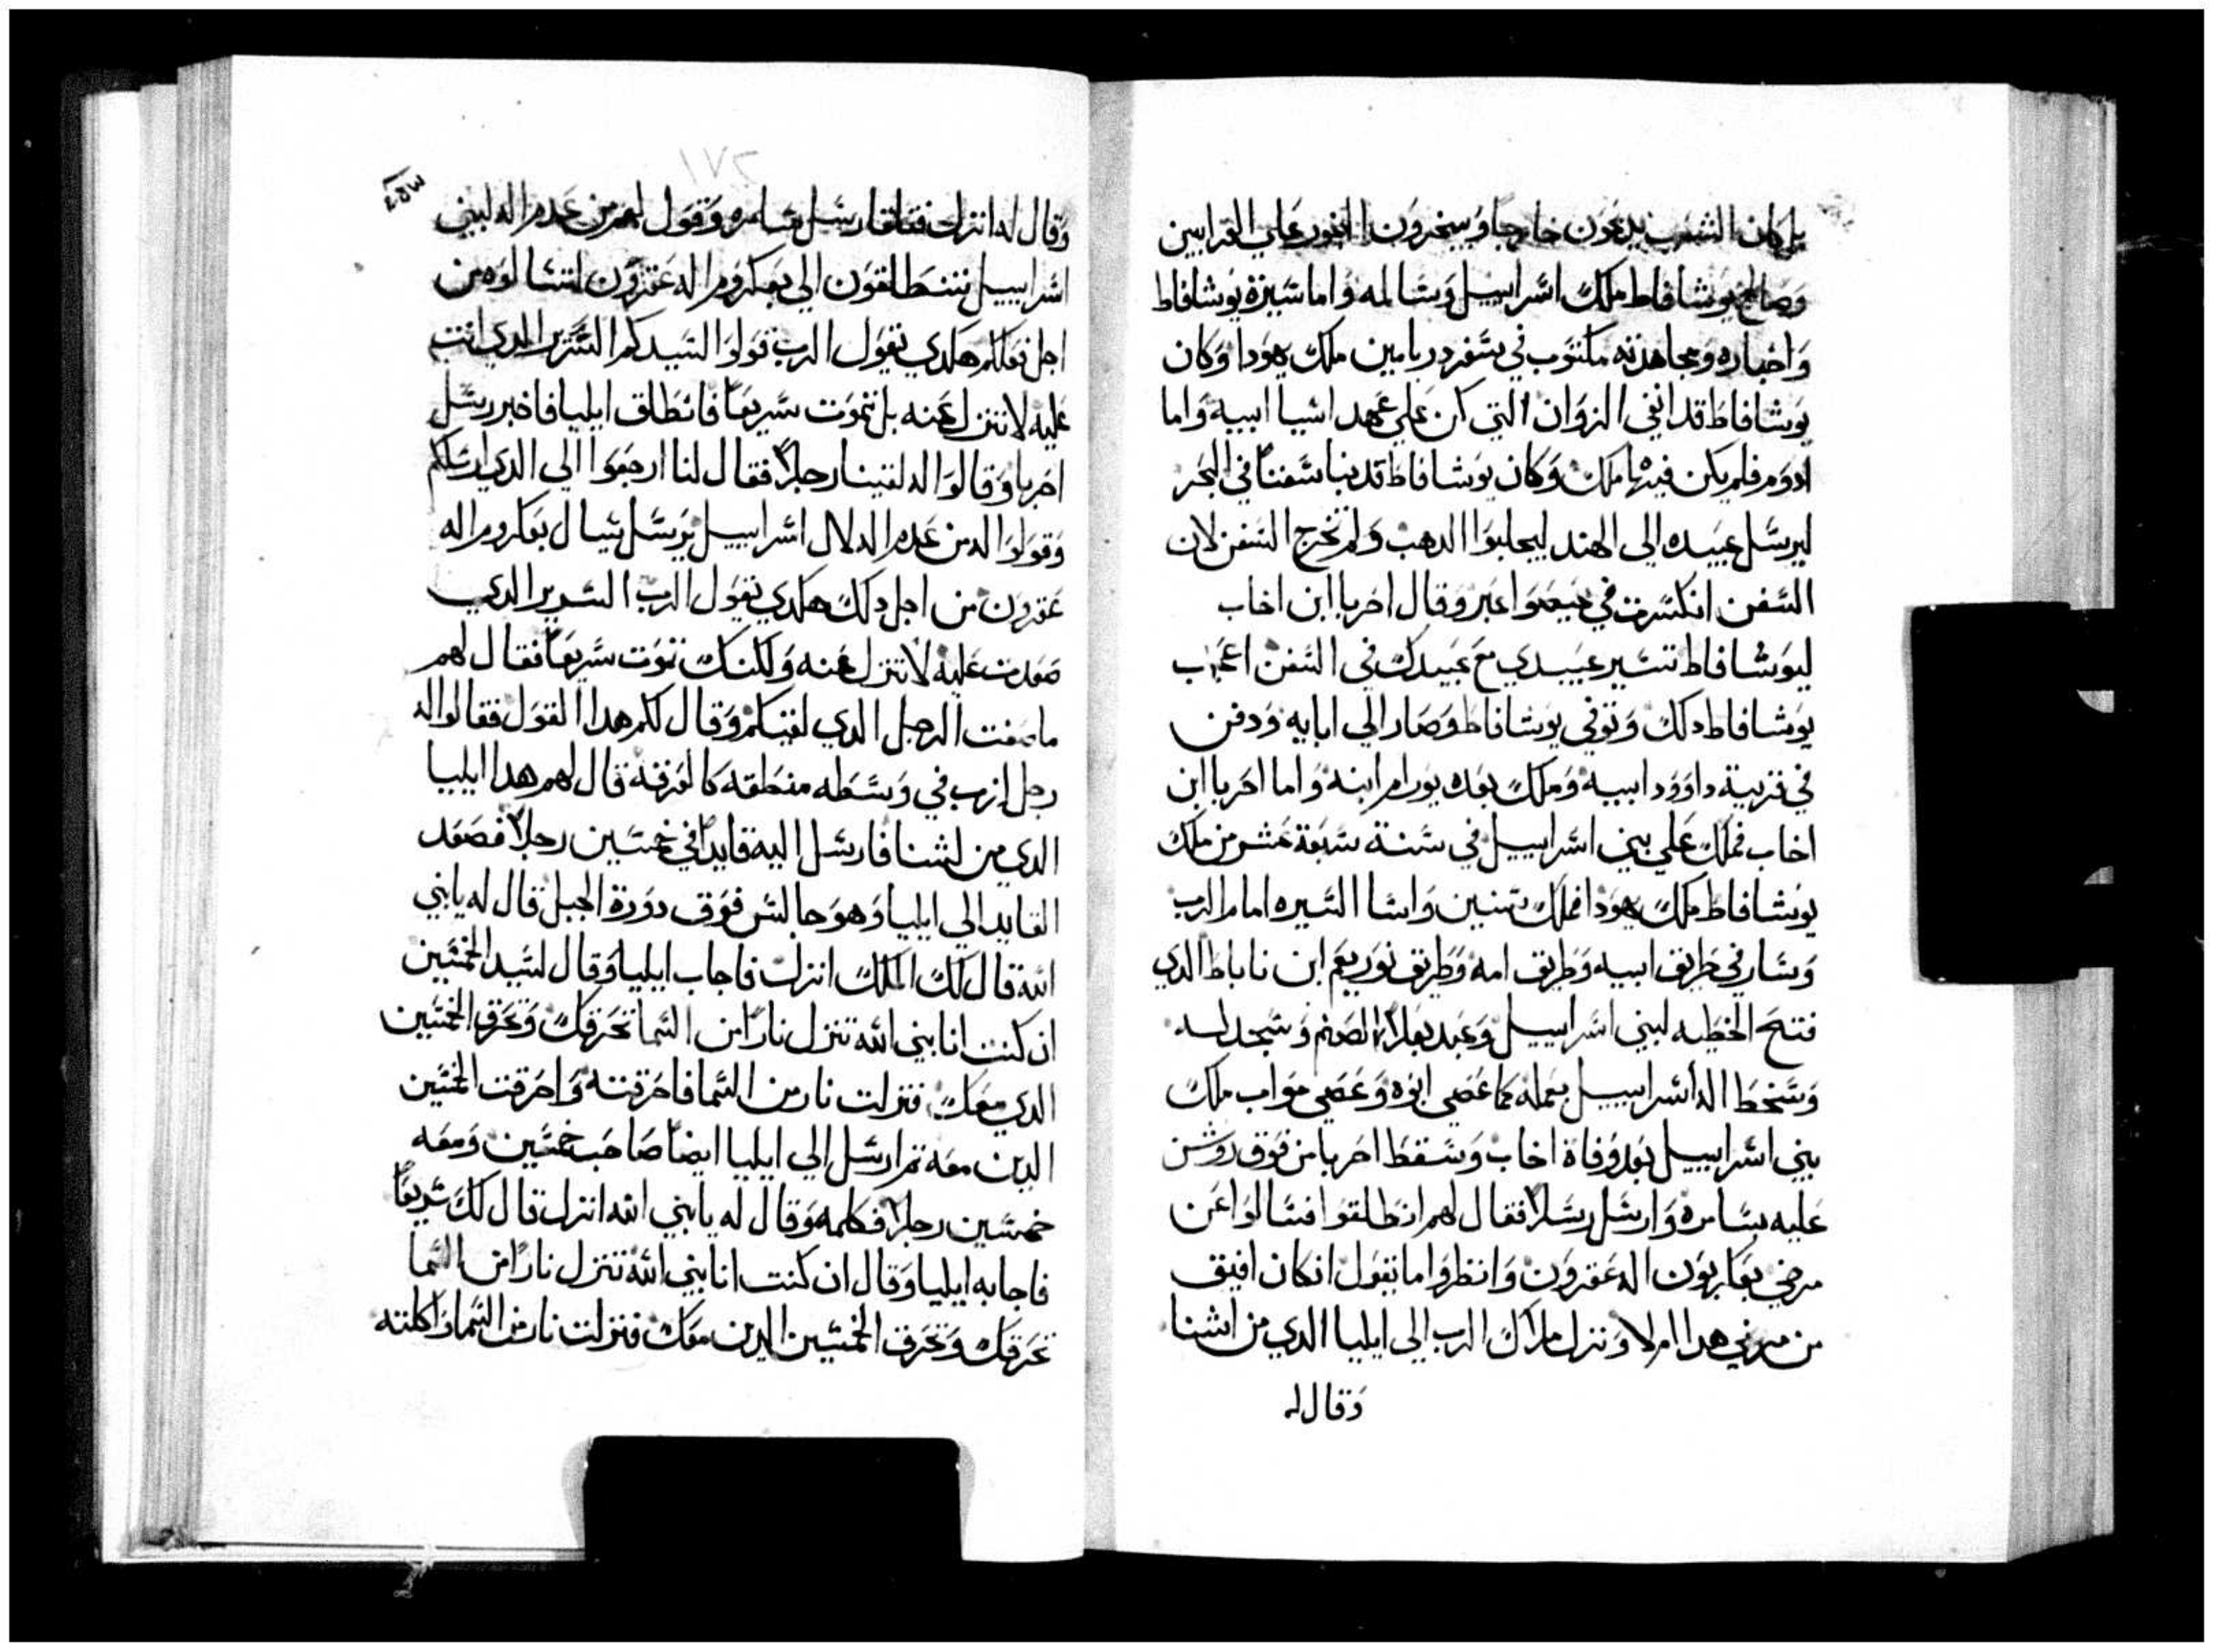 بل كان الشعب يدبحون خارجا ويبخرون البخور علي القرابين
وصالح يوشافاط ملك اسراييل وسالمه واما سيرة يوشافاط
واخباره ومجاهدته مكتوب في سفر دبريامين ملك يهودا وكان
يوشافاط قد انفي الزوان التي كن علي عهد اسيا ابيه واما
ادوم فلم يكن فيها ملك وكان يوشافاط قد بنا سفنا في البحر
ليرسل عبيده الي الهند ليجلبوا الدهب ولم تخرج السفن لان
السفن انكسرت في جبعوا عبر وقال احزيا ابن اخاب
ليوشافاط تسير عبيدي مع عبيدك في السفن اعجب
يوشافاط دلك وتوفي يوشافاط وصار الي ابايه ودفن
في قرية داوود ابيه وملك بعده يورام ابنه واما احزيا ابن
اخاب فملك علي بني اسراييل في سنة سبعة عشر من ملك
يوشافاط ملك يهودا فملك سنين واسا السيره امام الرب
وسار في طريق ابيه وطريق امه وطريق نوربعم ابن ناباط الدي
فتح الخطيه لبني اسراييل وعبد بعلا الصنم وسجد له
وسخط اله اسراييل بعمله كما عصي ابوه وعصي مواب ملك
بني اسراييل بعد وفاة اخاب وسقط احزيا من فوق روشن
عليه بسامره وارسل رسلا فقال لهم انطلقوا فسالوا عن
مرضي بعاربون اله عقرون وانظروا ما تقول ان كان افيق
من مرضي هدا ام لا ونزل ملاك الرب الي ايليا الدي من لشنا
وقال له
١٧٢
٢٥٣
وقال له انزل فتلقا رسل سامره وقول لهم من عدم اله لبني
اسراييل تنطلقون الي بعكروم اله عقرون لتسالوه من
اجل فعلكم هكدي يقول الرب قولوا لسيدكم السرير الدي انت
عليه لا تنزل عنه بل تموت سريعا فانطلق ايليا فاخبر رسل
احزيا وقالوا له لقينا رجلا فقال لنا ارجعوا الي الدي ارسلكم
وقولوا له من عدم اله لال اسراييل يرسل يسال بعكروم اله
عقرون من اجل دلك هكدي يقول الرب السرير الدي
صعدت عليه لا تنزل عنه ولكنك تموت سريعا فقال لهم
ما صفت الرجل الدي لقيكم وقال لكم هدا القول فقالوا له
رجل ازب في وسطه منطقه كالغرفه قال لهم هدا ايليا
الدي من لشنا فارسل اليه قايدا في خمسين رجلا فصعد
القايد الي ايليا وهو جالس فوق دورة الجبل قال له يا نبي
الله قال لك الملك انزل فاجاب ايليا وقال لسيد الخمسين
ان كنت انا نبي الله تنزل نارا من السما تحرقك وتحرق الخمسين
الدي معك فنزلت نار من السما فاحرقته واحرقت الخمسين
الدين معه تم ارسل الي ايليا ايضا صاحب خمسين ومعه
خمسين رجلا فكلمه وقال له يا نبي الله انزل قال لك سريعا
فاجابه ايليا وقال ان كنت انا نبي الله تنزل نارا من السما
تحرقك وتحرق الخمسين الدين معك فنزلت نار من السما واكلته